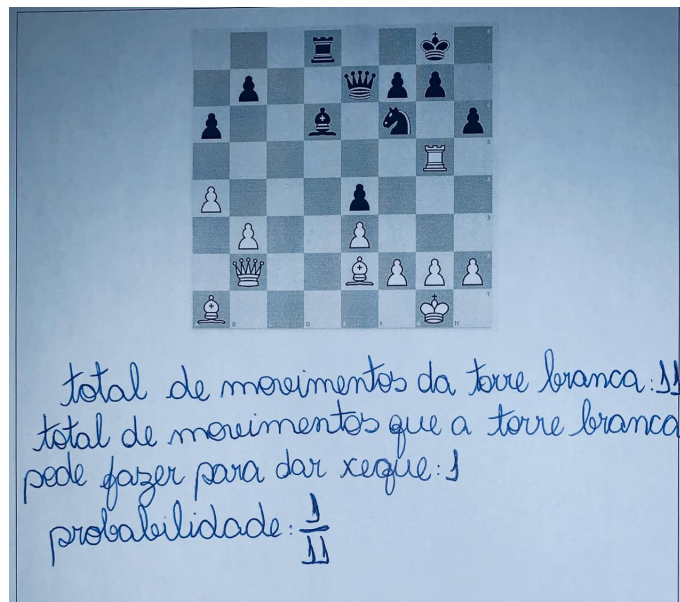 total de movimentos da torre branca: 11
total de movimentos que a torre branca
pode fazer para dar xeque: 1
probabilidade: 1/11